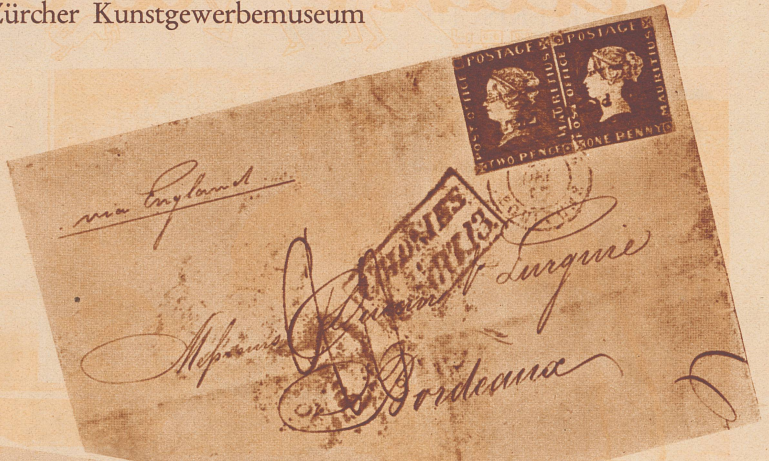 Zürcher Kunstgewerbemuseum
POSTAGE
POST OFFICE
MAURITIUS
TWO PENCE
POSTAGE
POST OFFICE
MAURITIUS
ONE PENNY
via England
COLONIES
ART.13.
Messieurs
Lurguie
Bordeaux